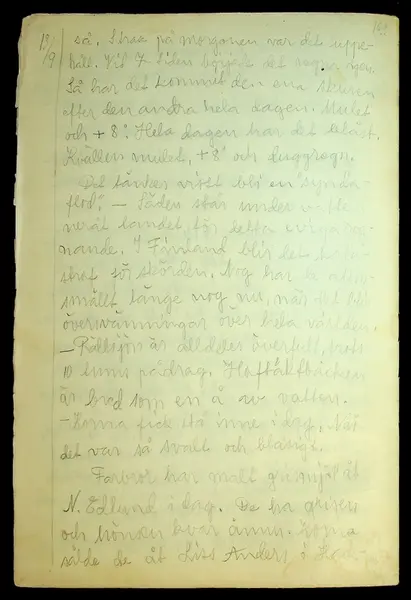 13/9
så. Strax på morgonen var det uppe-
håll. Vid 7 tiden började det regna igen.
Så har det kommit den ena skuren
efter den andra hela dagen. Mulet
och + 8°. Hela dagen har det blåst.
Kvällen mulen, + 8° och duggregn.
Det tänker visst bli en "synda-
flod". – Säden står under
landet, för detta eviga reg-
nande. I Finland blir det kata-
strof för skörden. Nog har
smällt länge nog nu, när det blir
översvämningar över hela världen.
– Rällsjön är alldeles överfull, trots
10 pådrag.
är bred som en å av vatten.
– Korna fick stå inne i dag. När
det var så svalt och blåsigt.
Farbror har malt grismjöl åt
N. Edlund i dag. De ha grisen
och hönsen kvar ännu. Korna
sålde de åt Liss Anders i